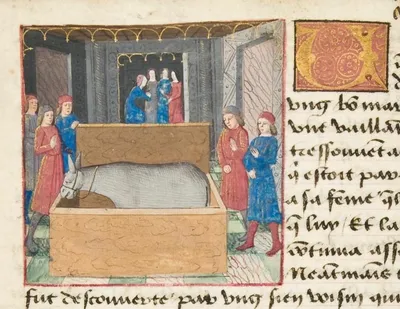 vng bo mar
vne vaillan
tressouuent a
q estoit par
a sa feme ql
q luy Et la
cotinua asse
Neatmains
fut descouuerte par vng sien voisin qui